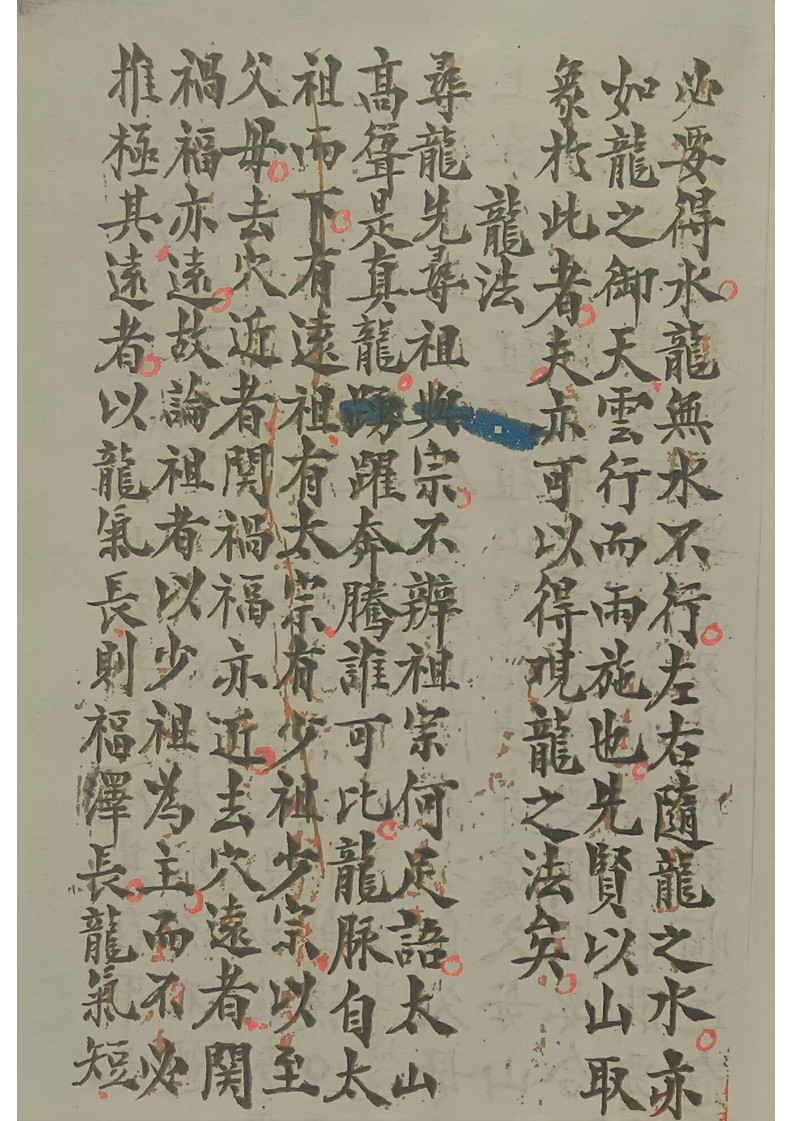 必要得水龍無水不行左右隨龍之水亦
如龍之御天雲行而雨施也先賢以山取
象於此者夫亦可以得观龍之法矣
龍法
尋龍先尋祖與宗不辨祖宗何足語太山
高聳是真龍踴躍奔騰誰可比龍脉自太
祖而下有遠祖有太宗有少祖少宗以至
父母去穴近者関禍福亦近去穴遠者関
禍福亦遠故論祖者以少祖為主而不必
推極其遠者以龍氣長則福澤長龍氣短